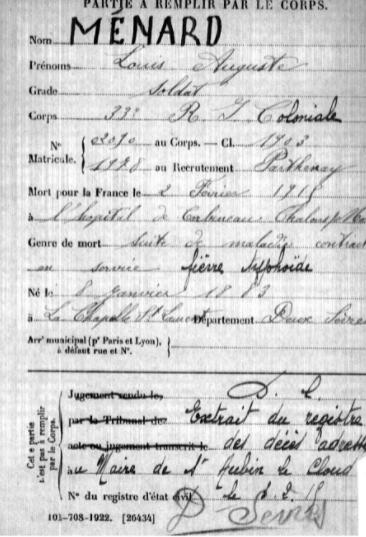 PARTIE À REMPLIR PAR LE CORPS.
Nom MÉNARD
Prénoms Louis Auguste
Grade Soldat
Corps 33e R I Coloniale
N° Matricule. { 02090 au Corps. — Cl. 1903
1978 au Recrutement Parthenay
Mort pour la France le 2 Février 1915
à l'hôpital de Chalons s/ Ma
Genre de mort suite de maladie contract
en service fièvre typhoïde
Né le 8 Janvier 1883
à La Chapelle St Laurent Département Deux Sèvres
Arr' municipal (p' Paris et Lyon), à défaut rue et N°.
Cette partie n'est pas à remplir par le Corps.
Jugement rendu le
par le Tribunal de Extrait du registre
acte ou jugement transcrit le des décès adressé
au Maire de St Aubin le Cloud
N° du registre d'état civil le
D. Sèvres
101-708-1922. [26434]